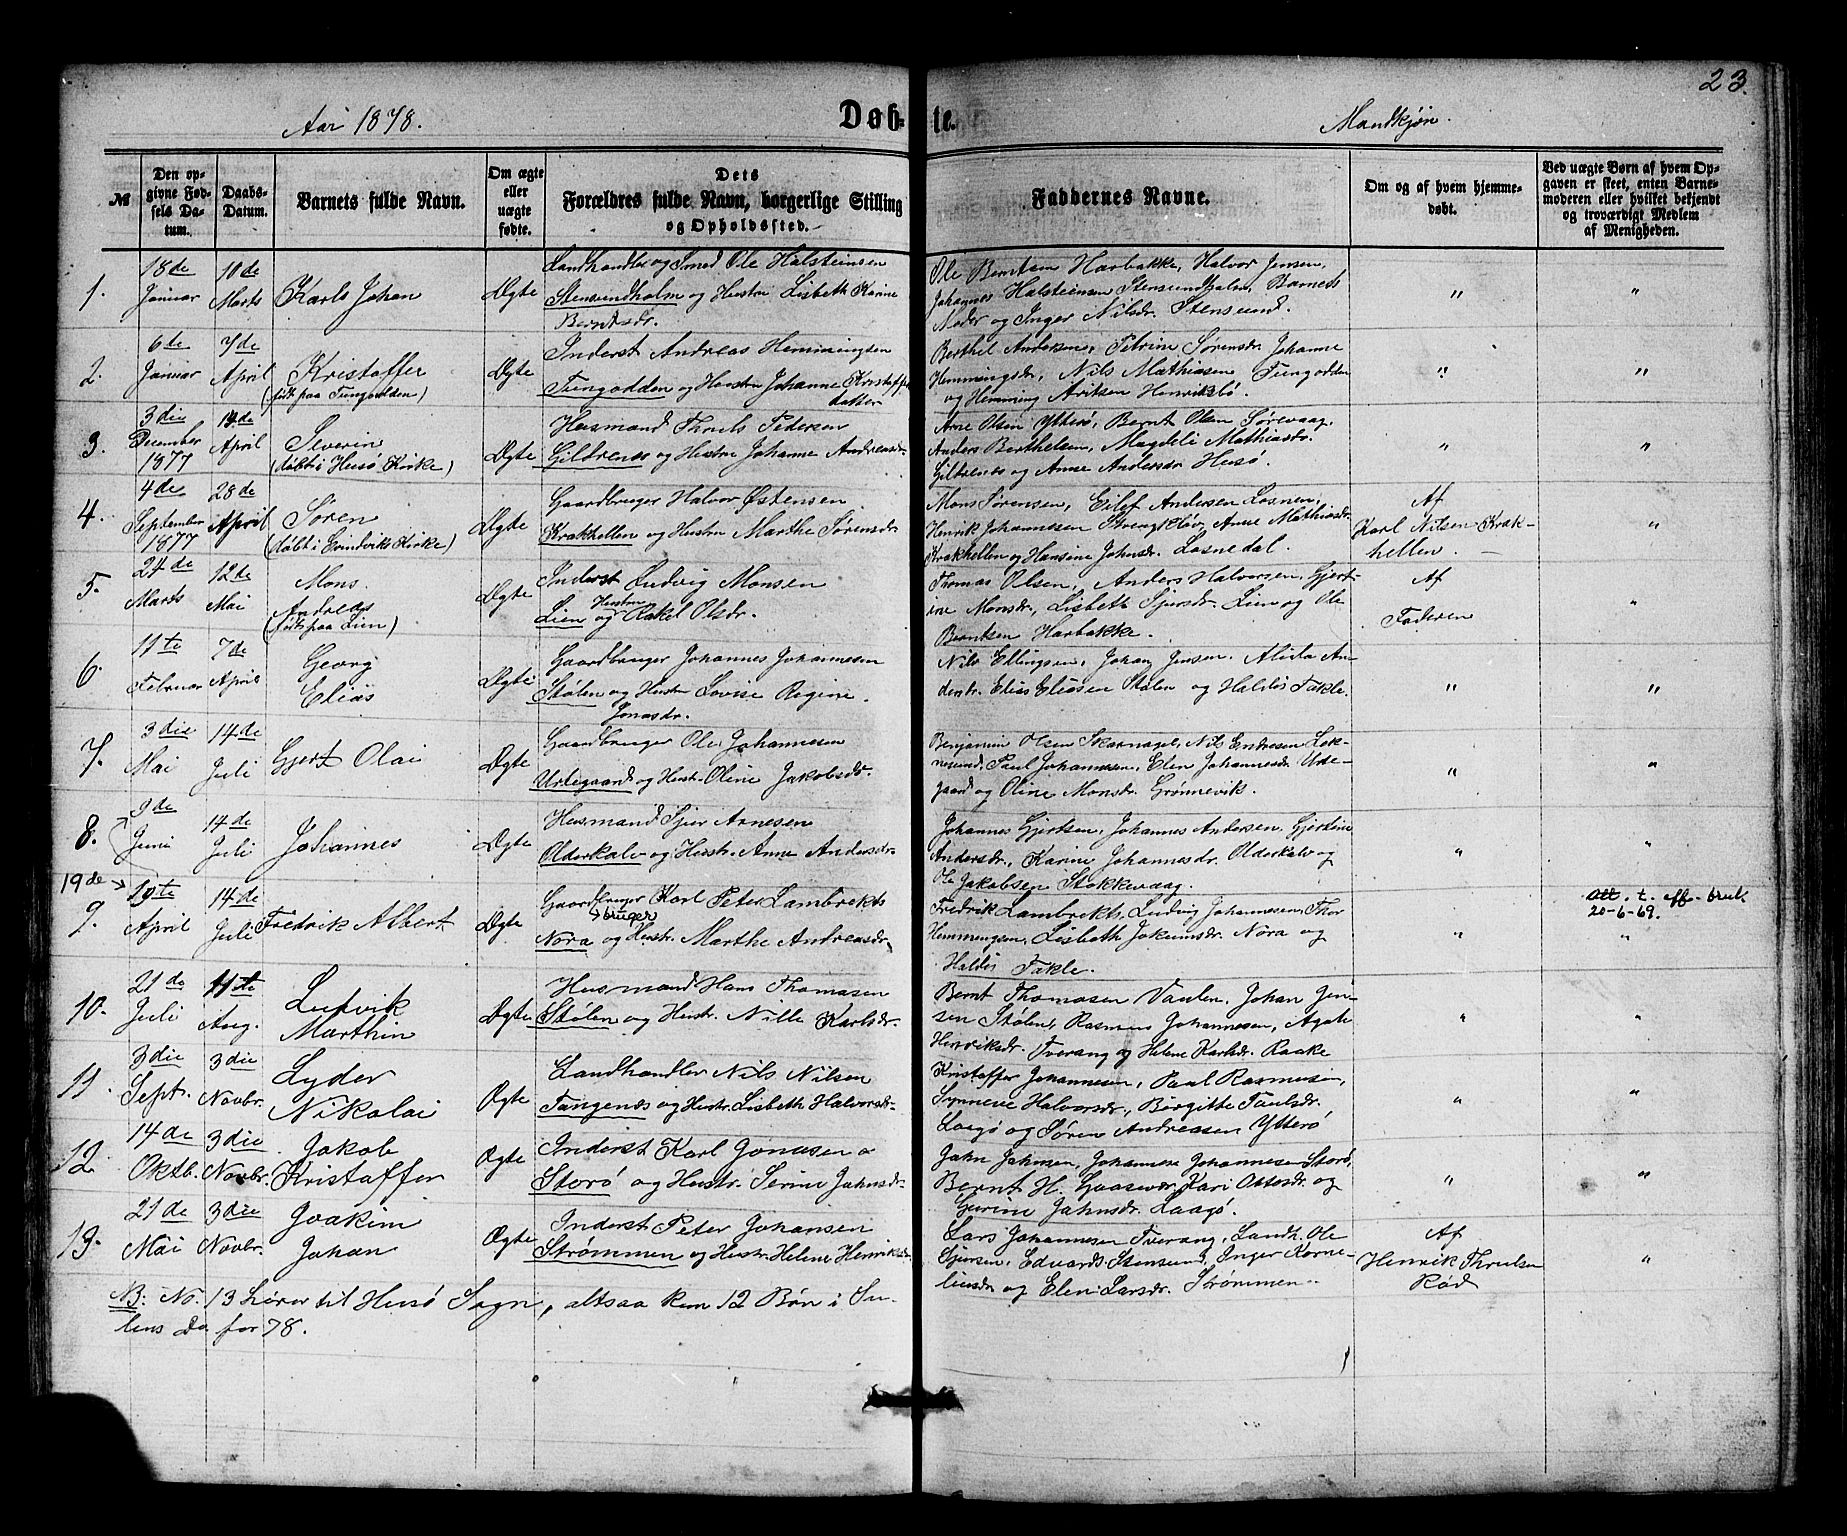 23.
Aar 1878.
Døb-
te.
Mandkjøn.
№
Den op-
givne Fød-
sels Da-
tum.
Daabs-
Datum.
Barnets fulde Navn.
Om ægte
eller
uægte
fødte.
Dets
Forældres fulde Navn, borgerlige Stilling
og Opholdssted.
Faddernes Navne.
Om og af hvem hjemme-
døbt.
Ved uægte Børn af hvem Op-
gaven er skeet, enten Barne-
moderen eller hvilket bekjendt
og troværdigt Medlem
af Menigheden.
1.
18de
Januar
10de
Marts
Karls Johan
Ægte
Landhandler og Smed Ole Halsteinsen
Stensundholm og Hustru Lisbeth Karine
Berntsdr.
Ole Berntsen Harbakke, Halvor Jensen,
Johannes Halsteinsen Stensundholm, Barnets
Moder og Inger Nilsdr. Stensund.
"
"
2.
6te
Januar
7de
April
Kristoffer
(født paa Tungodden)
Ægte
Inderst Andreas Hemmingsen
Tungodden og Hustru Johanne Kristoffer
datter
Berthel Andersen, Petrine Sørensdr. Johanne
Hemmingsdr, Nils Mathiasen Tungodden
og Hemming
"
"
3.
3die
December
1877
14de
April
Severin
(døbt i Husø Kirke)
Ægte
Husmand Thruls Pedersen
Gildrenes og Hustru Johanne Andreasdr.
Arne Olsen Ytterø, Bernt Olsen Sørevaag,
Anders Berthelsen, Magdeli Mathiasdr.
Gildrenes og Anne Andersdr Husø.
"
"
4.
4de
September
1877
28de
April
Søren
(døbt i Evindviks Kirke)
Ægte
Gaardbruger Halvor Østensen
Krakhellen og Hustru Marthe Sørensdr
Mons Sørensen, Eilef Andersen Losnen,
Henrik Johannesen, Anne Mathiasdr.
Krakhellen og Hansine Johnsdr. Losnedal.
Af
Karl Nilsen Krak-
hellen. —
"
5.
24de
Marts
12de
Mai
Mons
Andreas
(født paa Lien)
Ægte
Inderst Ludvig Monsen
Hustru
Lien og Rakel Olsdr.
Thomas Olsen, Anders Halvorsen, Gjert-
ine Monsdr., Lisbeth Sjursdr. Lien og Ole
Berntsen Harbakke.
Af
Faderen
"
6.
11te
Februar
7de
April
Georg
Elias
Ægte
Gaardbruger Johannes Johannesen
Stølen og Hustru Lovise Regine
Jonasdr.
Nils Ellingsen, Johan Jensen, Alida An-
dersdr. Elias Eliasen Stølen og Haldis Takle.
"
"
7.
3die
Mai
14de
Juli
Gjert Olai
Ægte
Gaardbruger Ole Johannesen
Udegaard og Hustr. Oline Jakobsdr.
Benjamin Olsen Skarnagel, Nils Endresen Lek-
nesund, Paul Johannesen, Elen Johannesdr. Ude-
gaard og Oline Monsdr. Grønnevik.
"
"
8.
9de
Juni
14de
Juli
Johannes
Ægte
Husmand Sjur Arnesen
Olderkalv og Hustr. Anne Andersdr.
Johannes Gjertsen, Johannes Andersen, Gjertine
Andersdr., Karine Johannesdr. Olderkalv og
Ole Jakobsen Stokkevaag.
"
"
9.
19de
19te
April
14de
Juli
Fredrik Albert
Ægte
Gaardbruger Karl Peter Lambrekts
bruger
Nora og Hustr. Marthe Andreasdr.
Fredrik Lambrekts, Ludvig Johannesen, Thor
Hemmingsen, Lisbeth Jokumsdr. Nora og
Haldis Takle.
"
Att. t. off. bruk
20-6-69.
"
10.
21de
Juli
11te
Aug.
Ludvik
Marthin
Ægte
Husmand Hans Thomasen
Stølen og Hustr. Nille Karlsdr.
Bernt Thomasen Vaulen, Johan Jen-
sen Stølen, Rasmus Johannesen, Agate
Henriksdr. Tverang og Helene Karlsdr. Raake
"
"
11.
3die
Sept.
3die
Novbr.
Lyder
Nikolai
Ægte
Landhandler Nils Nilsen
Tangenes og Hustr. Lisbeth Halvorsdr.
Kristoffer Johannesen, Paul Rasmusen,
Synneve Halvorsdr., Birgitte Paulsdr.
Laagø og Søren Andreasen Ytterø
"
"
12.
14de
Oktb.
3die
Novbr.
Jakob
Kristoffer
Ægte
Inderst Karl Jonasen
Storø og Hustr. Serine Jahnsdr.
Jahn Jahnsen, Johannes Johannesen Storø,
Bernt H. Gaasevær, Kari Ottosdr. og
Gurine Jahnsdr. Laagø.
"
"
13.
21de
Mai
3die
Novbr.
Joakim
Johan
Ægte
Inderst Peter Johansen
Strømmen og Hustr. Helene Henriksdr
Lars Johannesen Tverang, Landh. Ole
Sjursen, Edvard Stensund, Inger Korne-
liusdr og Elen Larsdr. Strømmen.
Af
Henrik Thrulsen
Rød
"
NB: No. 13 hører til Husø Sogn, altsaa kun 12 Børn i Su-
lens Do for 78.